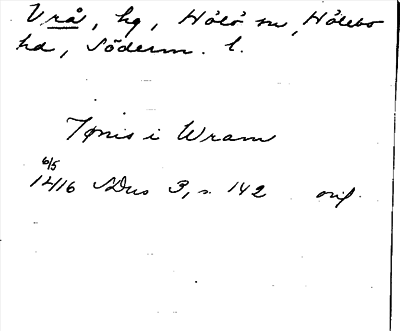 Vrå, hg, Hölö sn, Hölebo
hd, Söderm. l.
Tønis i Wram
6/5
1416 SDns 3, s. 142 orig.